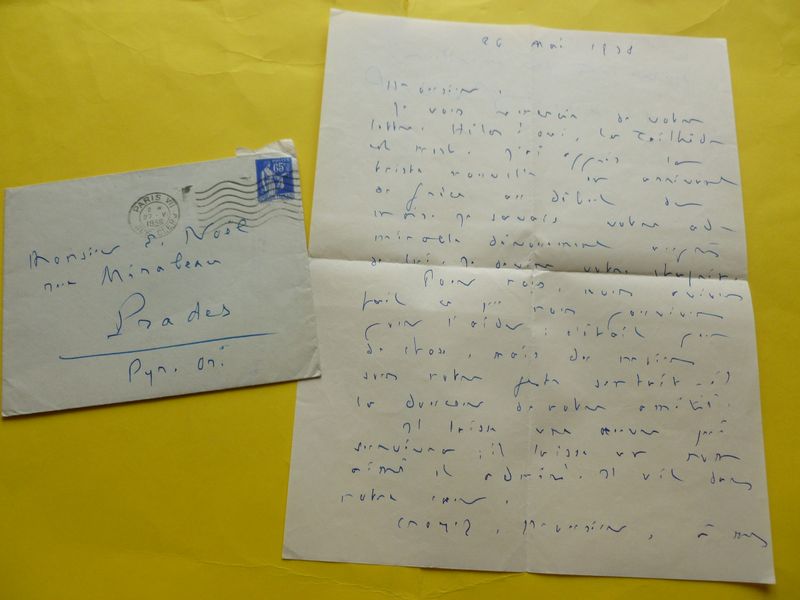 PARIS VII
1938
65
Monsieur E. Noël
rue Mirabeau
Prades
Pyr. Ori.
26 mai 1938
Monsieur,
Je vous remercie de votre
lettre. Hélas ! oui, La Tailhède
est mort. J'ai appris la
triste nouvelle en arrivant
de Grèce au début du
mois. Je savais votre ad-
mirable dévouement auprès
de lui. Je devine votre
Pour moi, nous avions
fait ce que nous pouvions
pour l'aider : c'était peu
de chose, mais du moins
votre geste sentait-il
la douceur de votre amitié.
Il laisse une œuvre qui
survivra ; il laisse un nom
aimé et admiré. Il vit dans
notre cœur.
Croyez, Monsieur, à mes